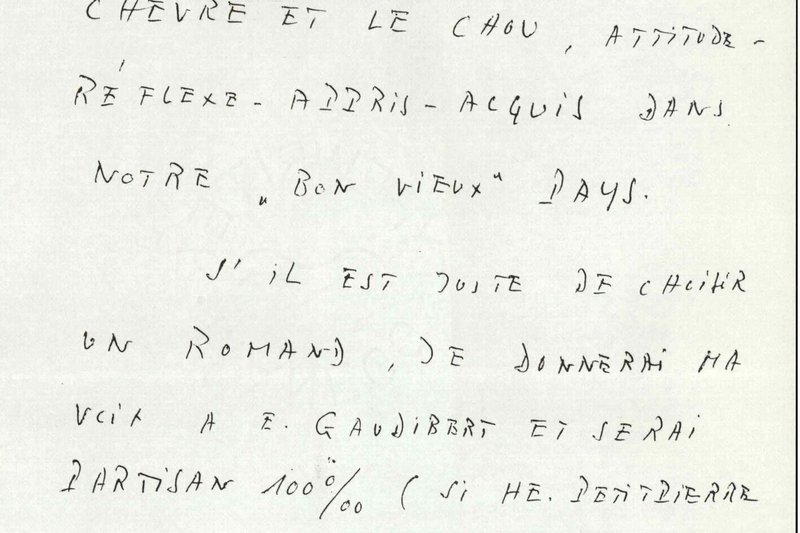 CHÈVRE ET LE CHOU, ATTITUDE-
RÉFLEXE-APPRIS-ACQUIS DANS
NOTRE „BON VIEUX" PAYS.
S'IL EST JUSTE DE CHOISIR
UN ROMAND, JE DONNERAI MA
VOIX A E. GAUDIBERT ET SERAI
PARTISAN 100%00 (SI HE. PETITPIERRE